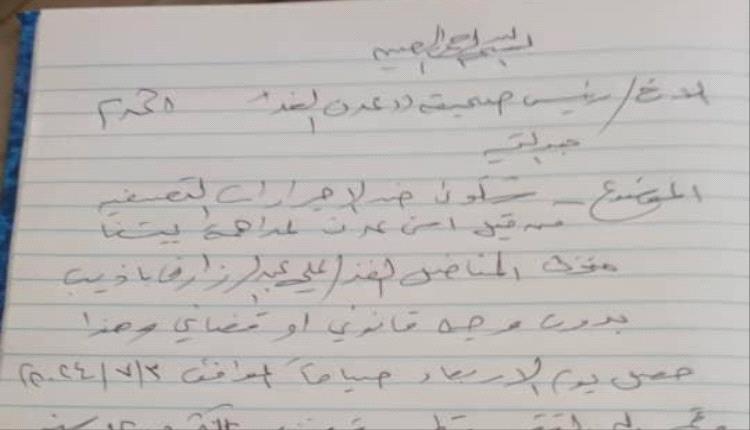 بسم الله الرحمن الرحيم
الأخ/ رئيس صحيفة ((عدن الغد)) المحترم
بعد التحية
الموضوع - شكوى ضد الإجراءات التعسفية
من قبل أمن عدن لمداهمة بيتنا
منزل المناضل الفذ/ علي عبدالرزاق باذيب
بدون وجه قانوني أو قضائي وهذا
حصل يوم الأربعاء صباحاً الموافق ٢٠٢٤/٧/٣م